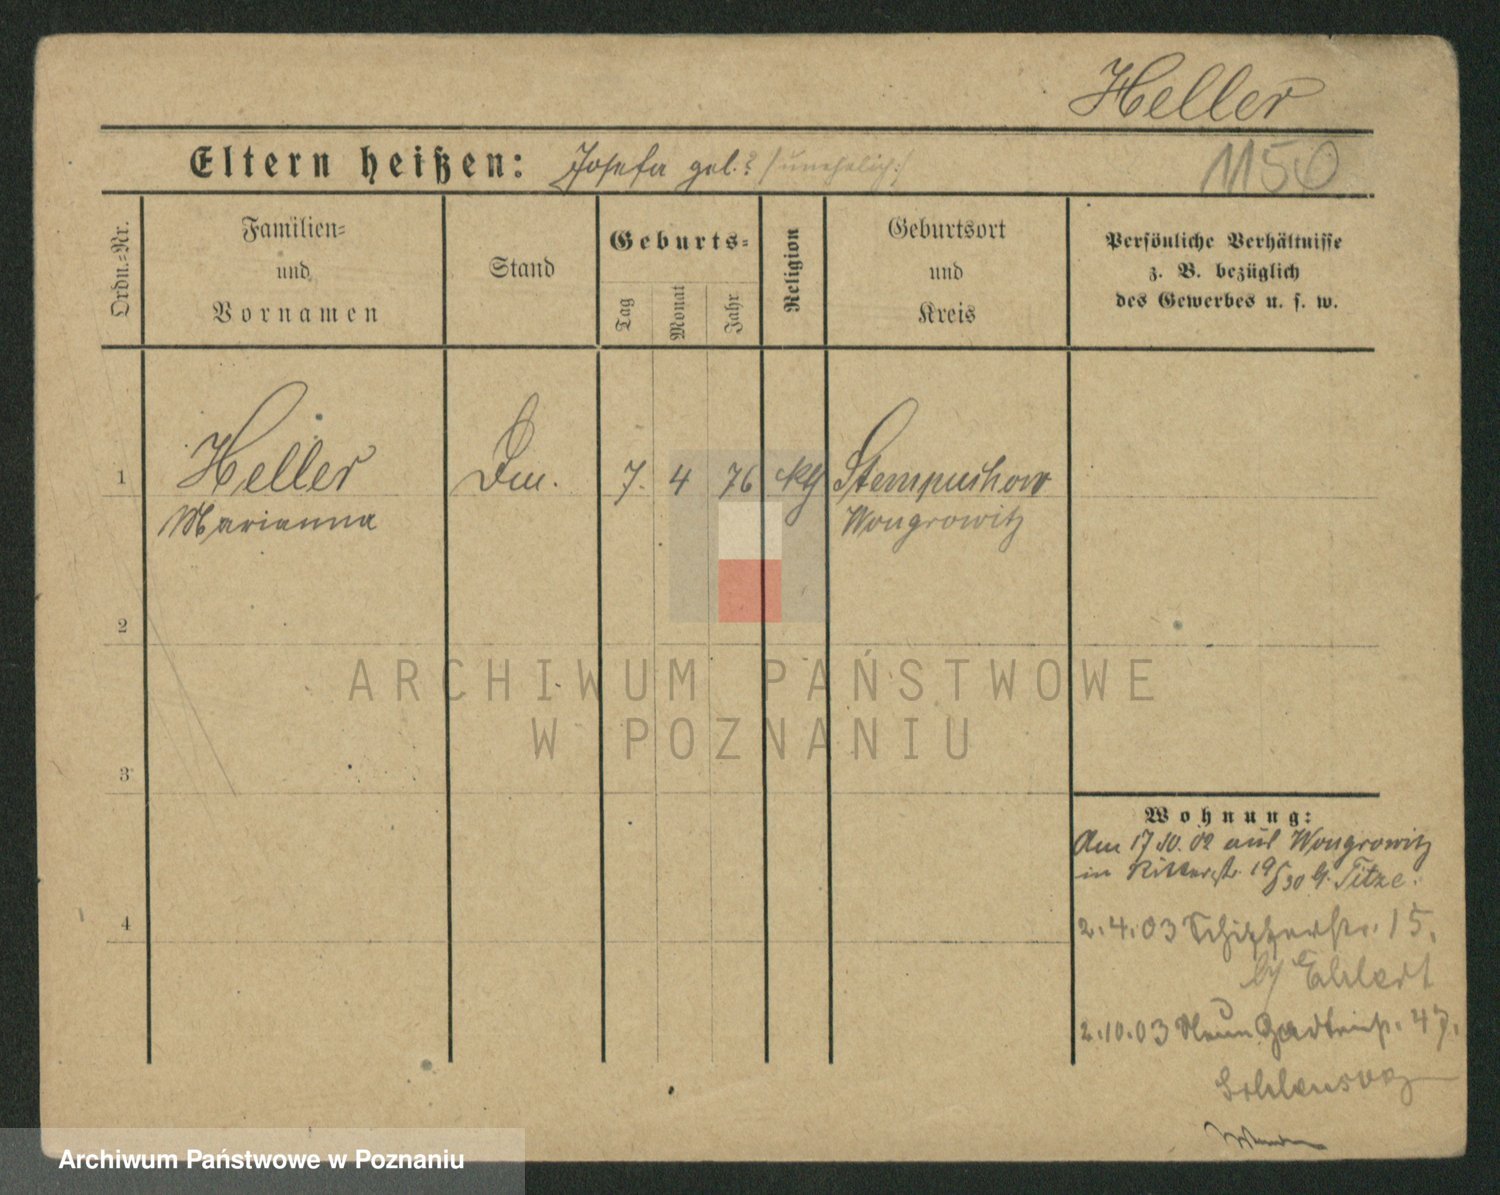 Heller
Eltern heißen: Josefa geb.? (unehelich)
1150
Ordn.-Nr.
Familien-
und
Vornamen
Stand
Geburts-
Tag
Monat
Jahr
Religion
Geburtsort
und
Kreis
Persönliche Verhältnisse
z. B. bezüglich
des Gewerbes u. s. w.
1
Heller
Marianna
7. 4 76 kth
Stempuchowo
Wongrowitz
2
3
4
Wohnung:
Am 17.10.02 aus Wongrowitz
in Ritterstr. 19/30 b. Titze.
2.4.03 15.
b/ Ehlert
2.10.03 47.
ARCHIWUM PAŃSTWOWE
W POZNANIU
Archiwum Państwowe w Poznaniu